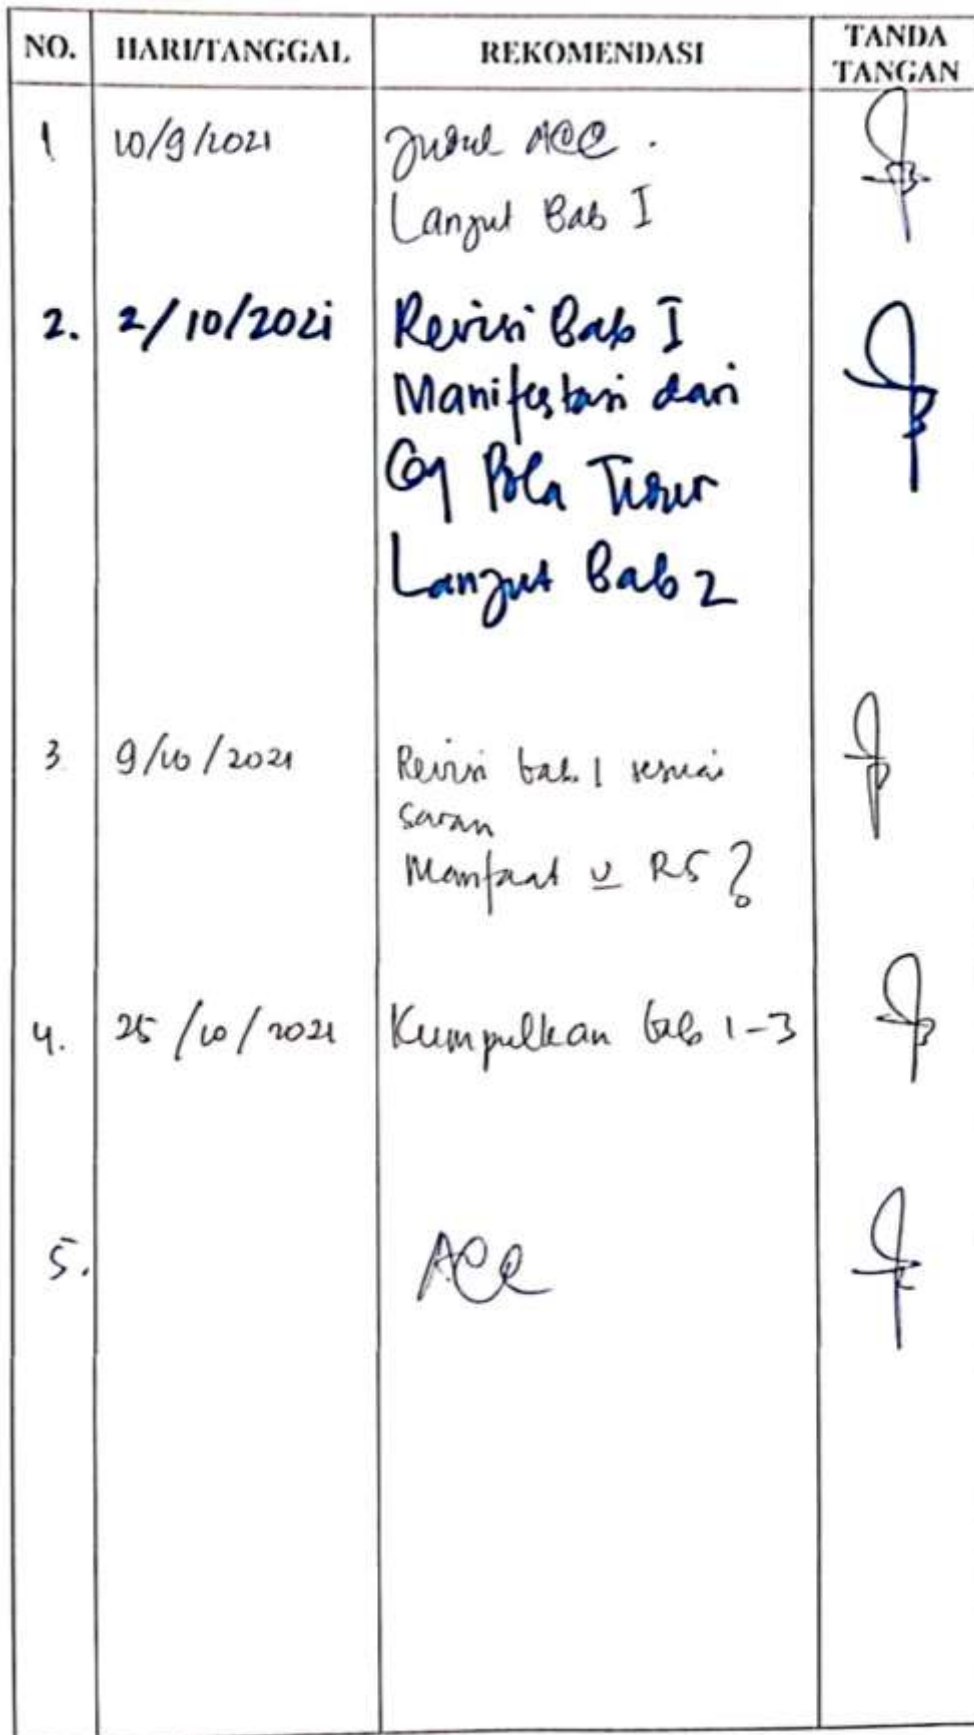 NO. HARI/TANGGAL REKOMENDASI TANDA TANGAN
1 10/9/2021 Judul ACC.
Lanjut Bab I
2. 2/10/2021 Revisi Bab I
Manifestasi dari
Pola Tidur
Lanjut Bab 2
3. 9/10/2021 Revisi bab 1 sesuai
saran
Manfaat u RS?
4. 25/10/2021 Kumpulkan bab 1-3
5. ACC